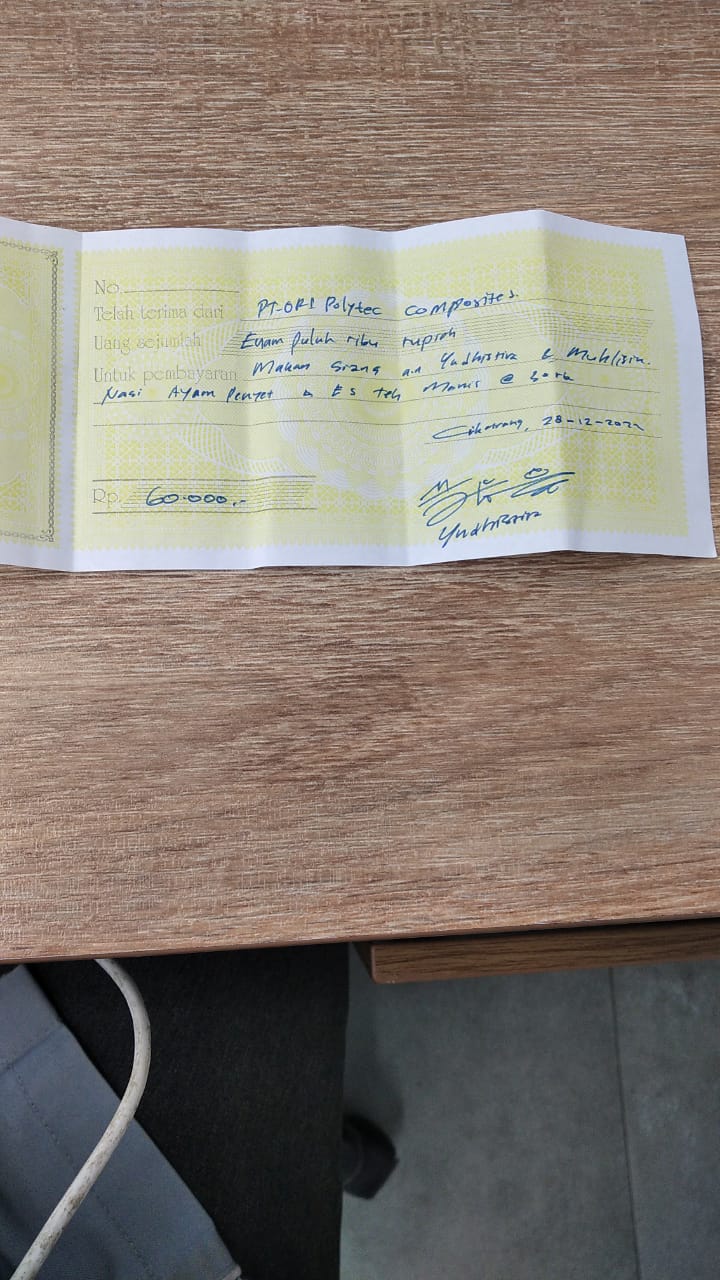 No.
Telah terima dari PT-ORI Polytec composites.
Uang sejumlah Enam puluh ribu rupiah
Untuk pembayaran Makan siang a.n Yudhistira & Muhlisin.
Nasi Ayam Penyet & Es teh Manis @
Cikarang, 28-12-202
Rp. 60.000,-
Yudhistira